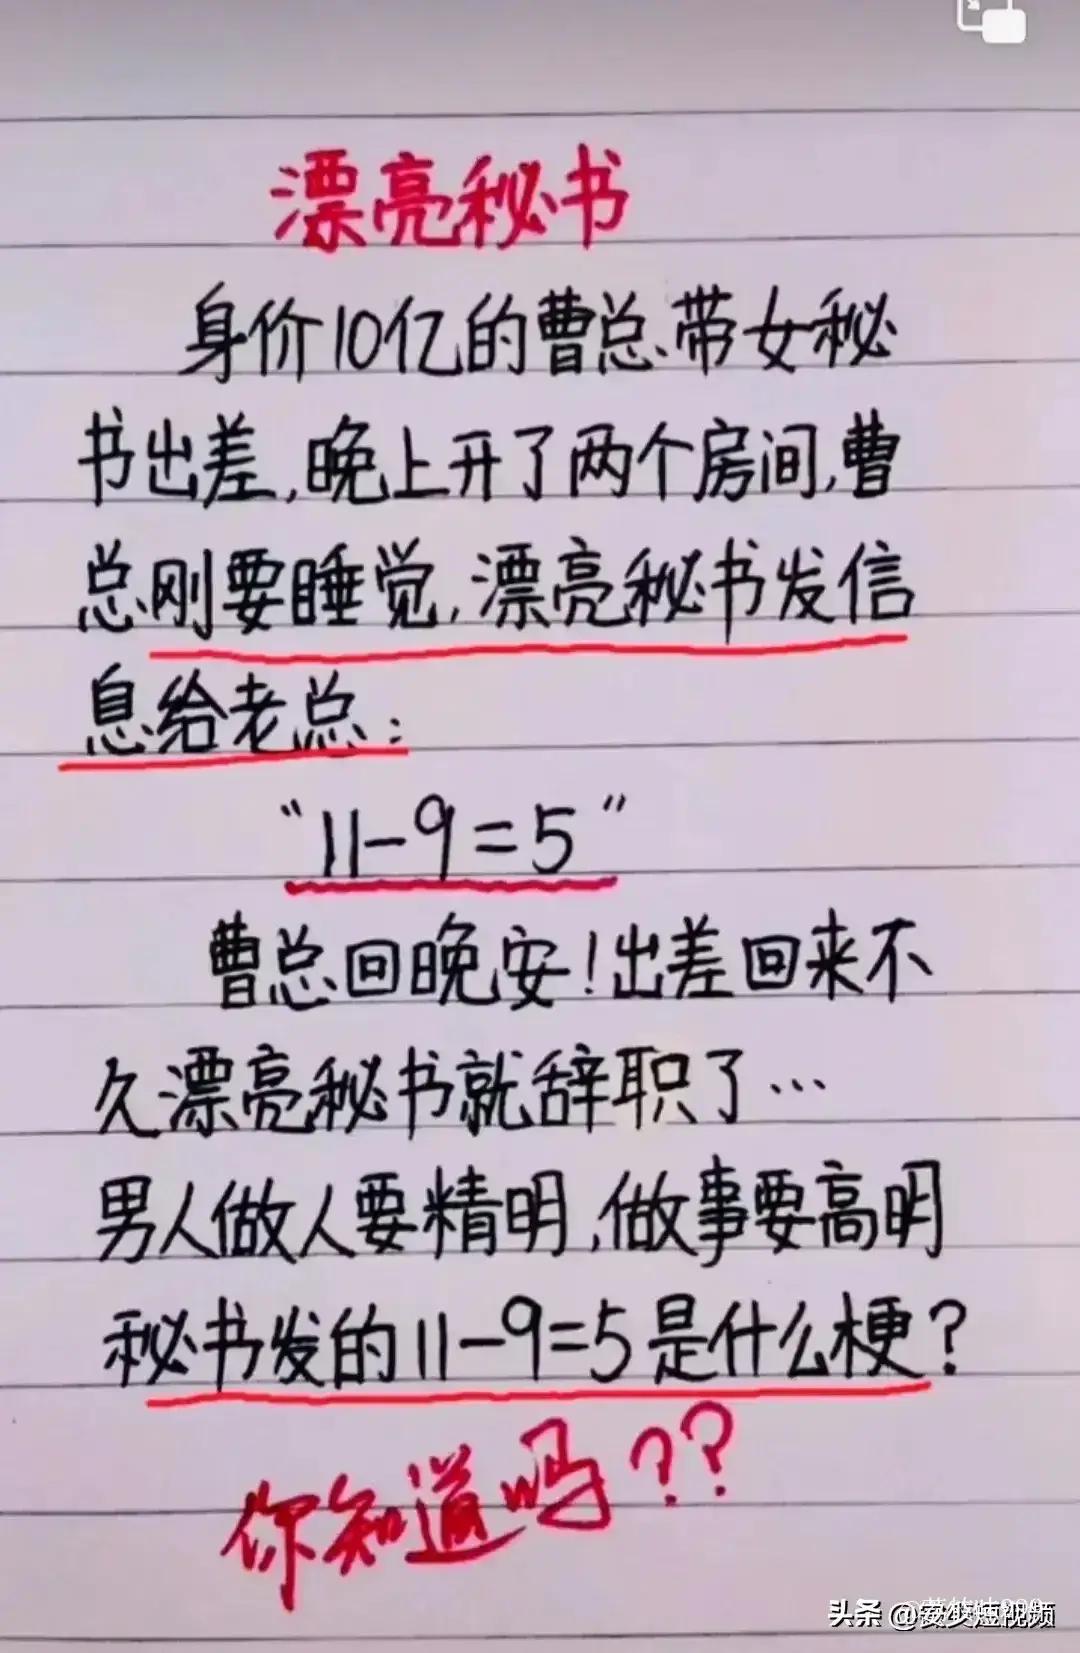 漂亮秘书
身价10亿的曹总带女秘
书出差,晚上开了两个房间,曹
总刚要睡觉,漂亮秘书发信
息给老总:
“11-9=5”
曹总回晚安!出差回来不
久漂亮秘书就辞职了…
男人做人要精明,做事要高明
秘书发的11-9=5是什么梗?
你知道吗??
头条